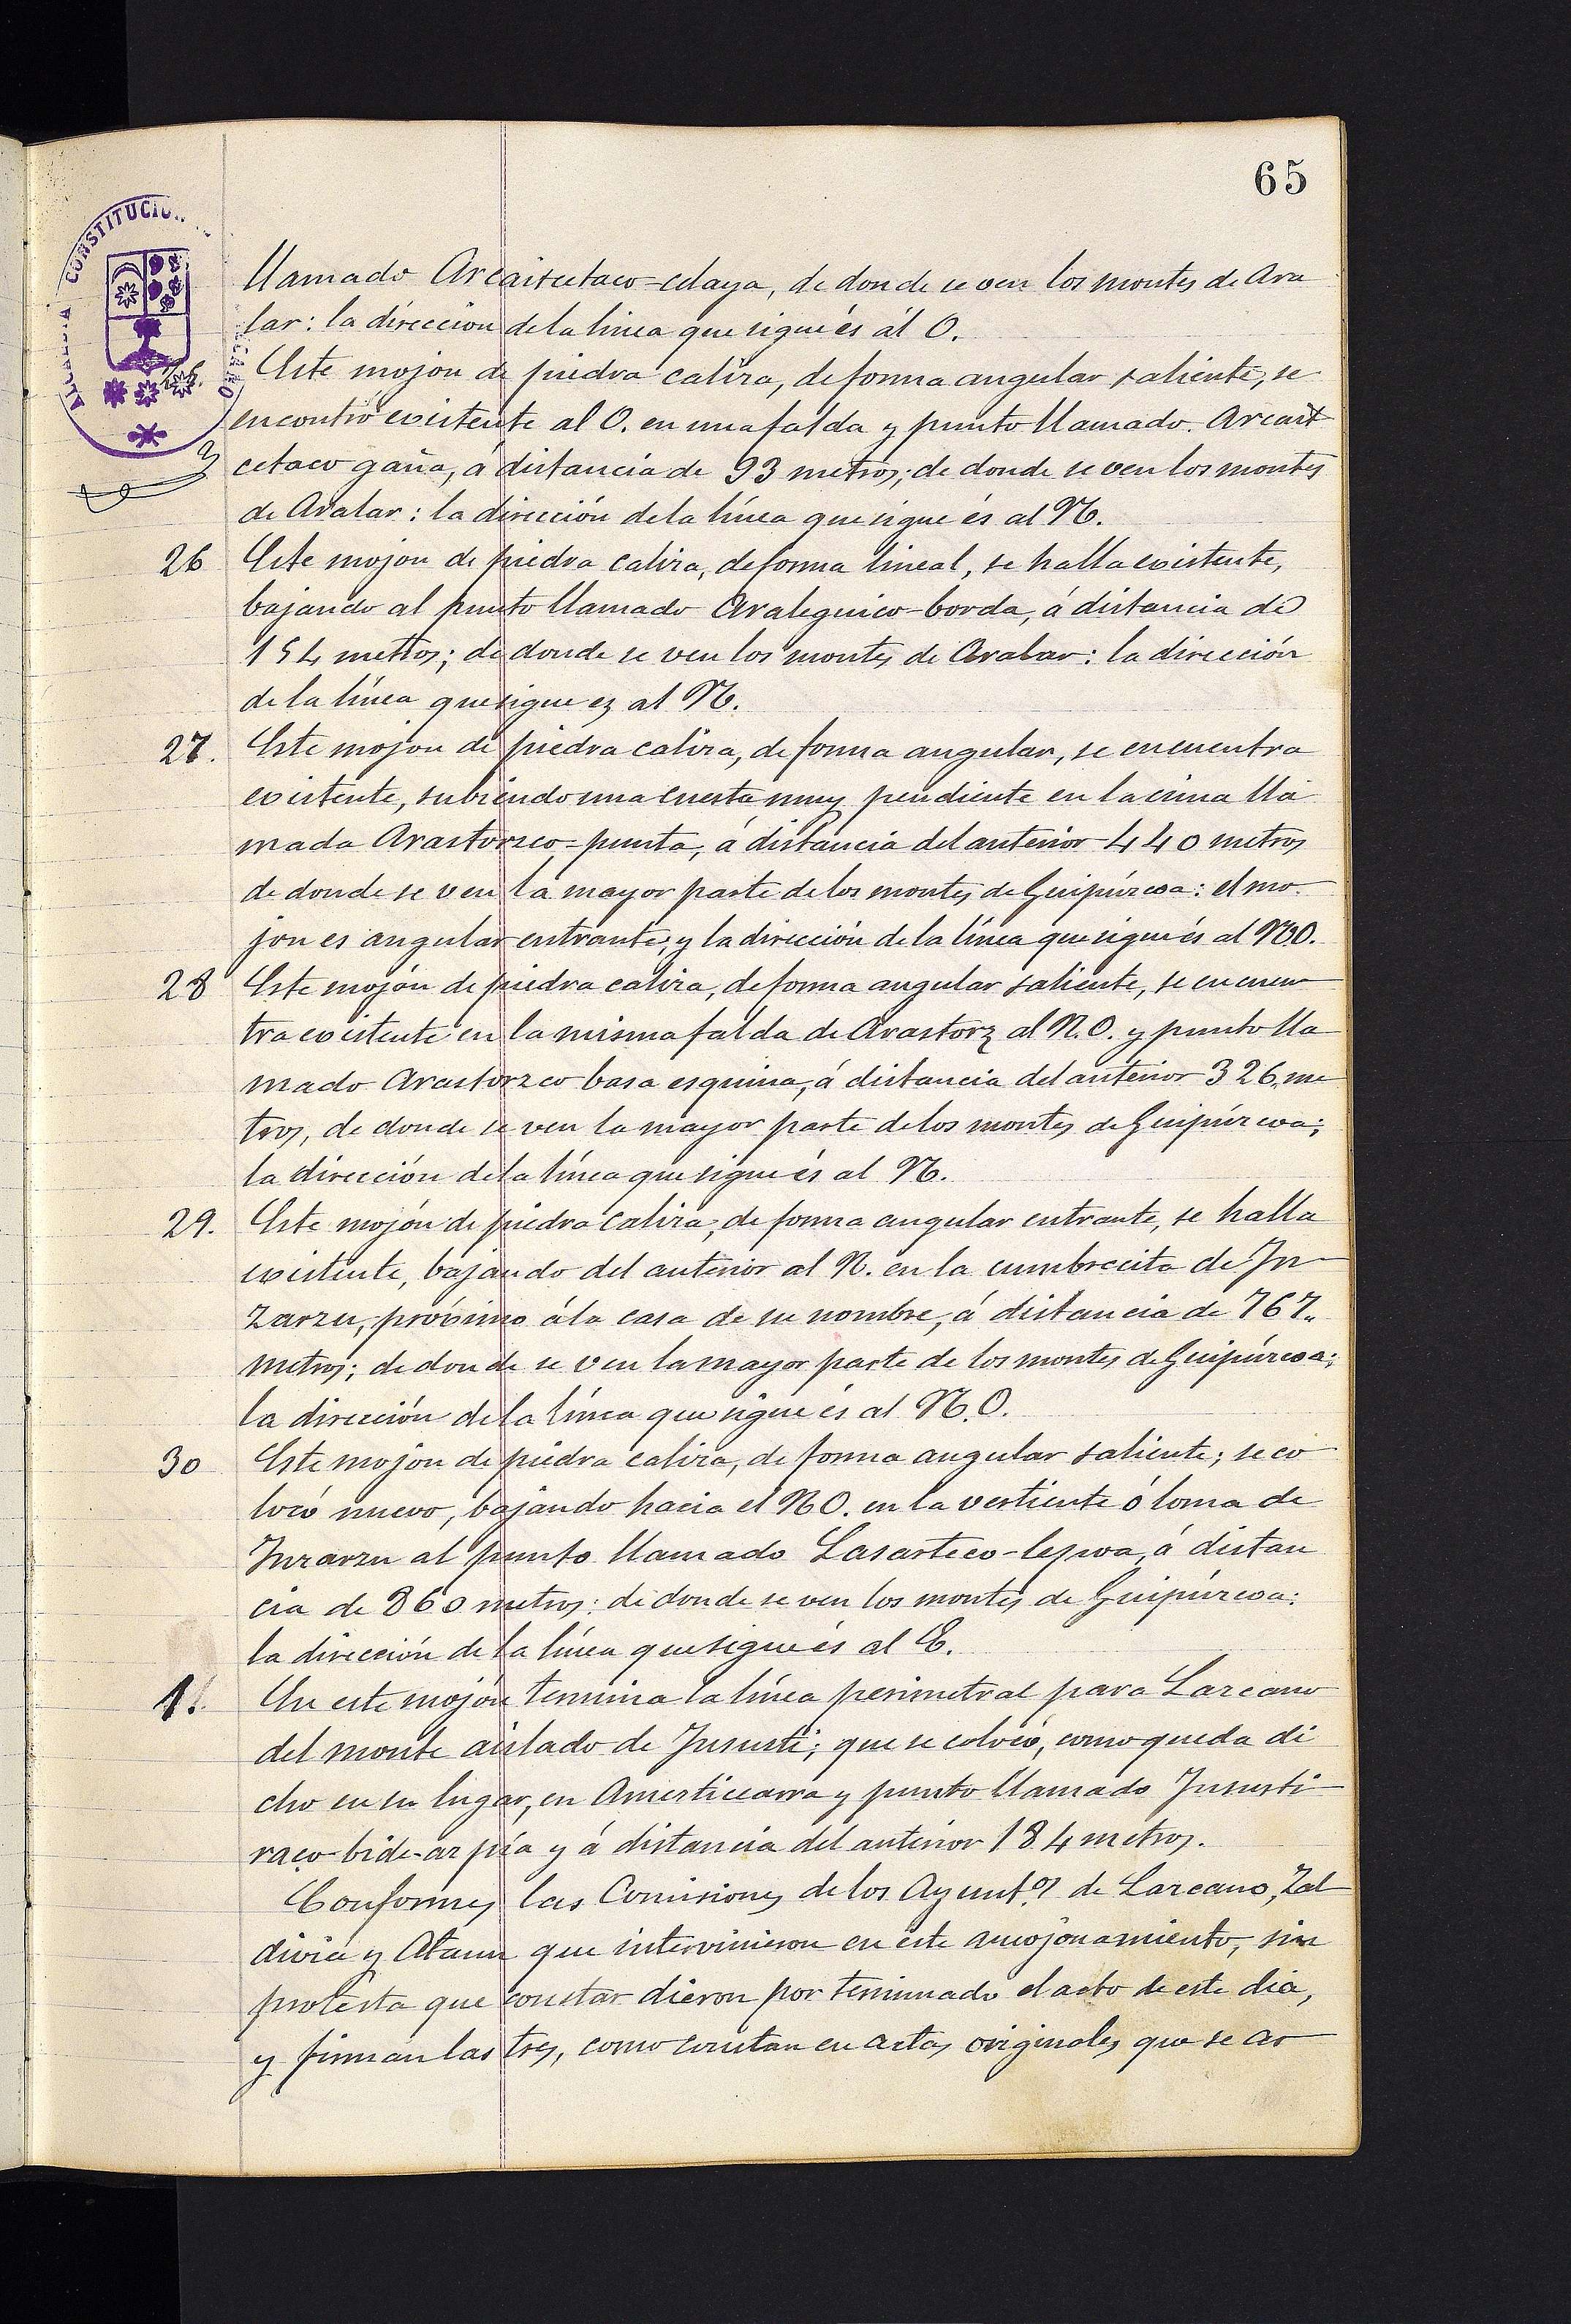 65
ALCALDIA CONSTITUCION
llamado Arcaitcetaco=celaya, de donde se ven los montes de Ara
lar: la direccion de la linea que sigue és ál O.
25. Este mojon de piedra caliza, de forma angular saliente, se
encontró existente al O. en una falda y punto llamado Arcait
cetaco gaña, á distancia de 93 metros; de donde se ven los montes
de Aralar: la dirección de la línea que sigue és al N.
26 Este mojon de piedra caliza, de forma lineal, se halla existente,
bajando al punto llamado Araleguico-borda, á distancia de
154 metros; de donde se ven los montes de Aralar: la dirección
de la línea que sigue es al N.
27. Este mojon de piedra caliza, de forma angular, se encuentra
existente, subiendo una cuesta muy pendiente en la cima lla
mada Arastorzco=punta, á distancia del anterior 440 metros
de donde se ven la mayor parte de los montes de Guipúzcoa: el mo-
jon es angular entrante, y la dirección de la línea que sigue és al NO.
28 Este mojón de piedra caliza, de forma angular saliente, se encuen
tra existente en la misma falda de Arastorz al N.O. y punto lla
mado Arastorzco basa esquina, á distancia del anterior 326 me
tros, de donde se ven la mayor parte de los montes de Guipúzcoa;
la dirección de la línea que sigue és al N.
29. Este mojón de piedra caliza, de forma angular entrante, se halla
existente, bajando del anterior al N. en la cumbrecita de In
zarzu, próximo á la casa de su nombre, á distancia de 767
metros; de donde se ven la mayor parte de los montes de Guipúzcoa;
la dirección de la línea que sigue és al N.O.
30 Este mojon de piedra caliza, de forma angular saliente; se co
locó nuevo, bajando hacia el NO. en la vertiente ó loma de
Inzarzu al punto llamado Lasarteco-lepoa, á distan
cia de 860 metros: de donde se ven los montes de Guipúzcoa:
la dirección de la línea que sigue és al E.
1. En este mojón termina la línea perimetral para Lazcano
del monte aislado de Jususti; que se colocó, como queda di
cho en su lugar, en Amezticarra y punto llamado Jususti
raco-bide-azpia y á distancia del anterior 184 metros.
Conformes las Comisiones de los Ayuntos de Lazcano, Zal
divia y Ataun que intervinieron en este amojonamiento, sin
protesta que constar dieron por terminado el acto de este dia,
y firman las tres, como constan en actas originales que se ar